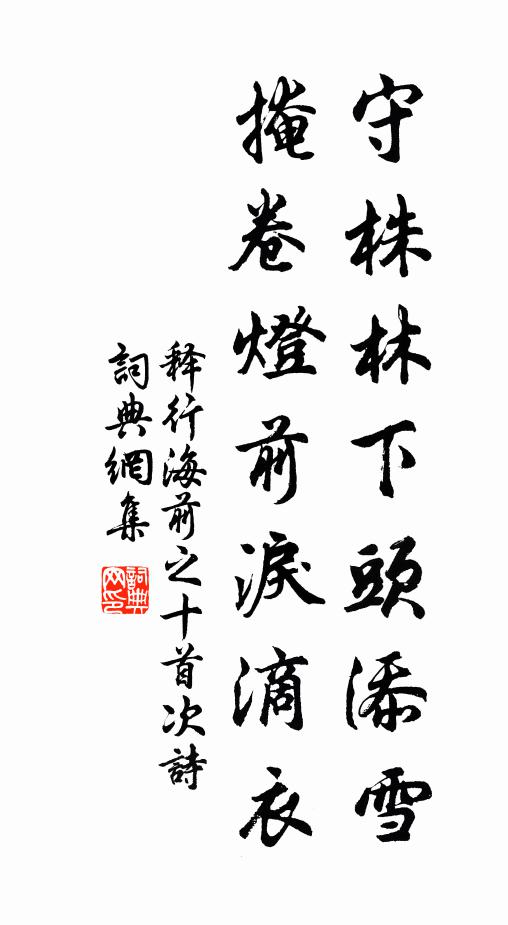 守株林下頭添雪
掩卷燈前淚滴衣
释行海前之十首次詩
詞典網集
詞典网印